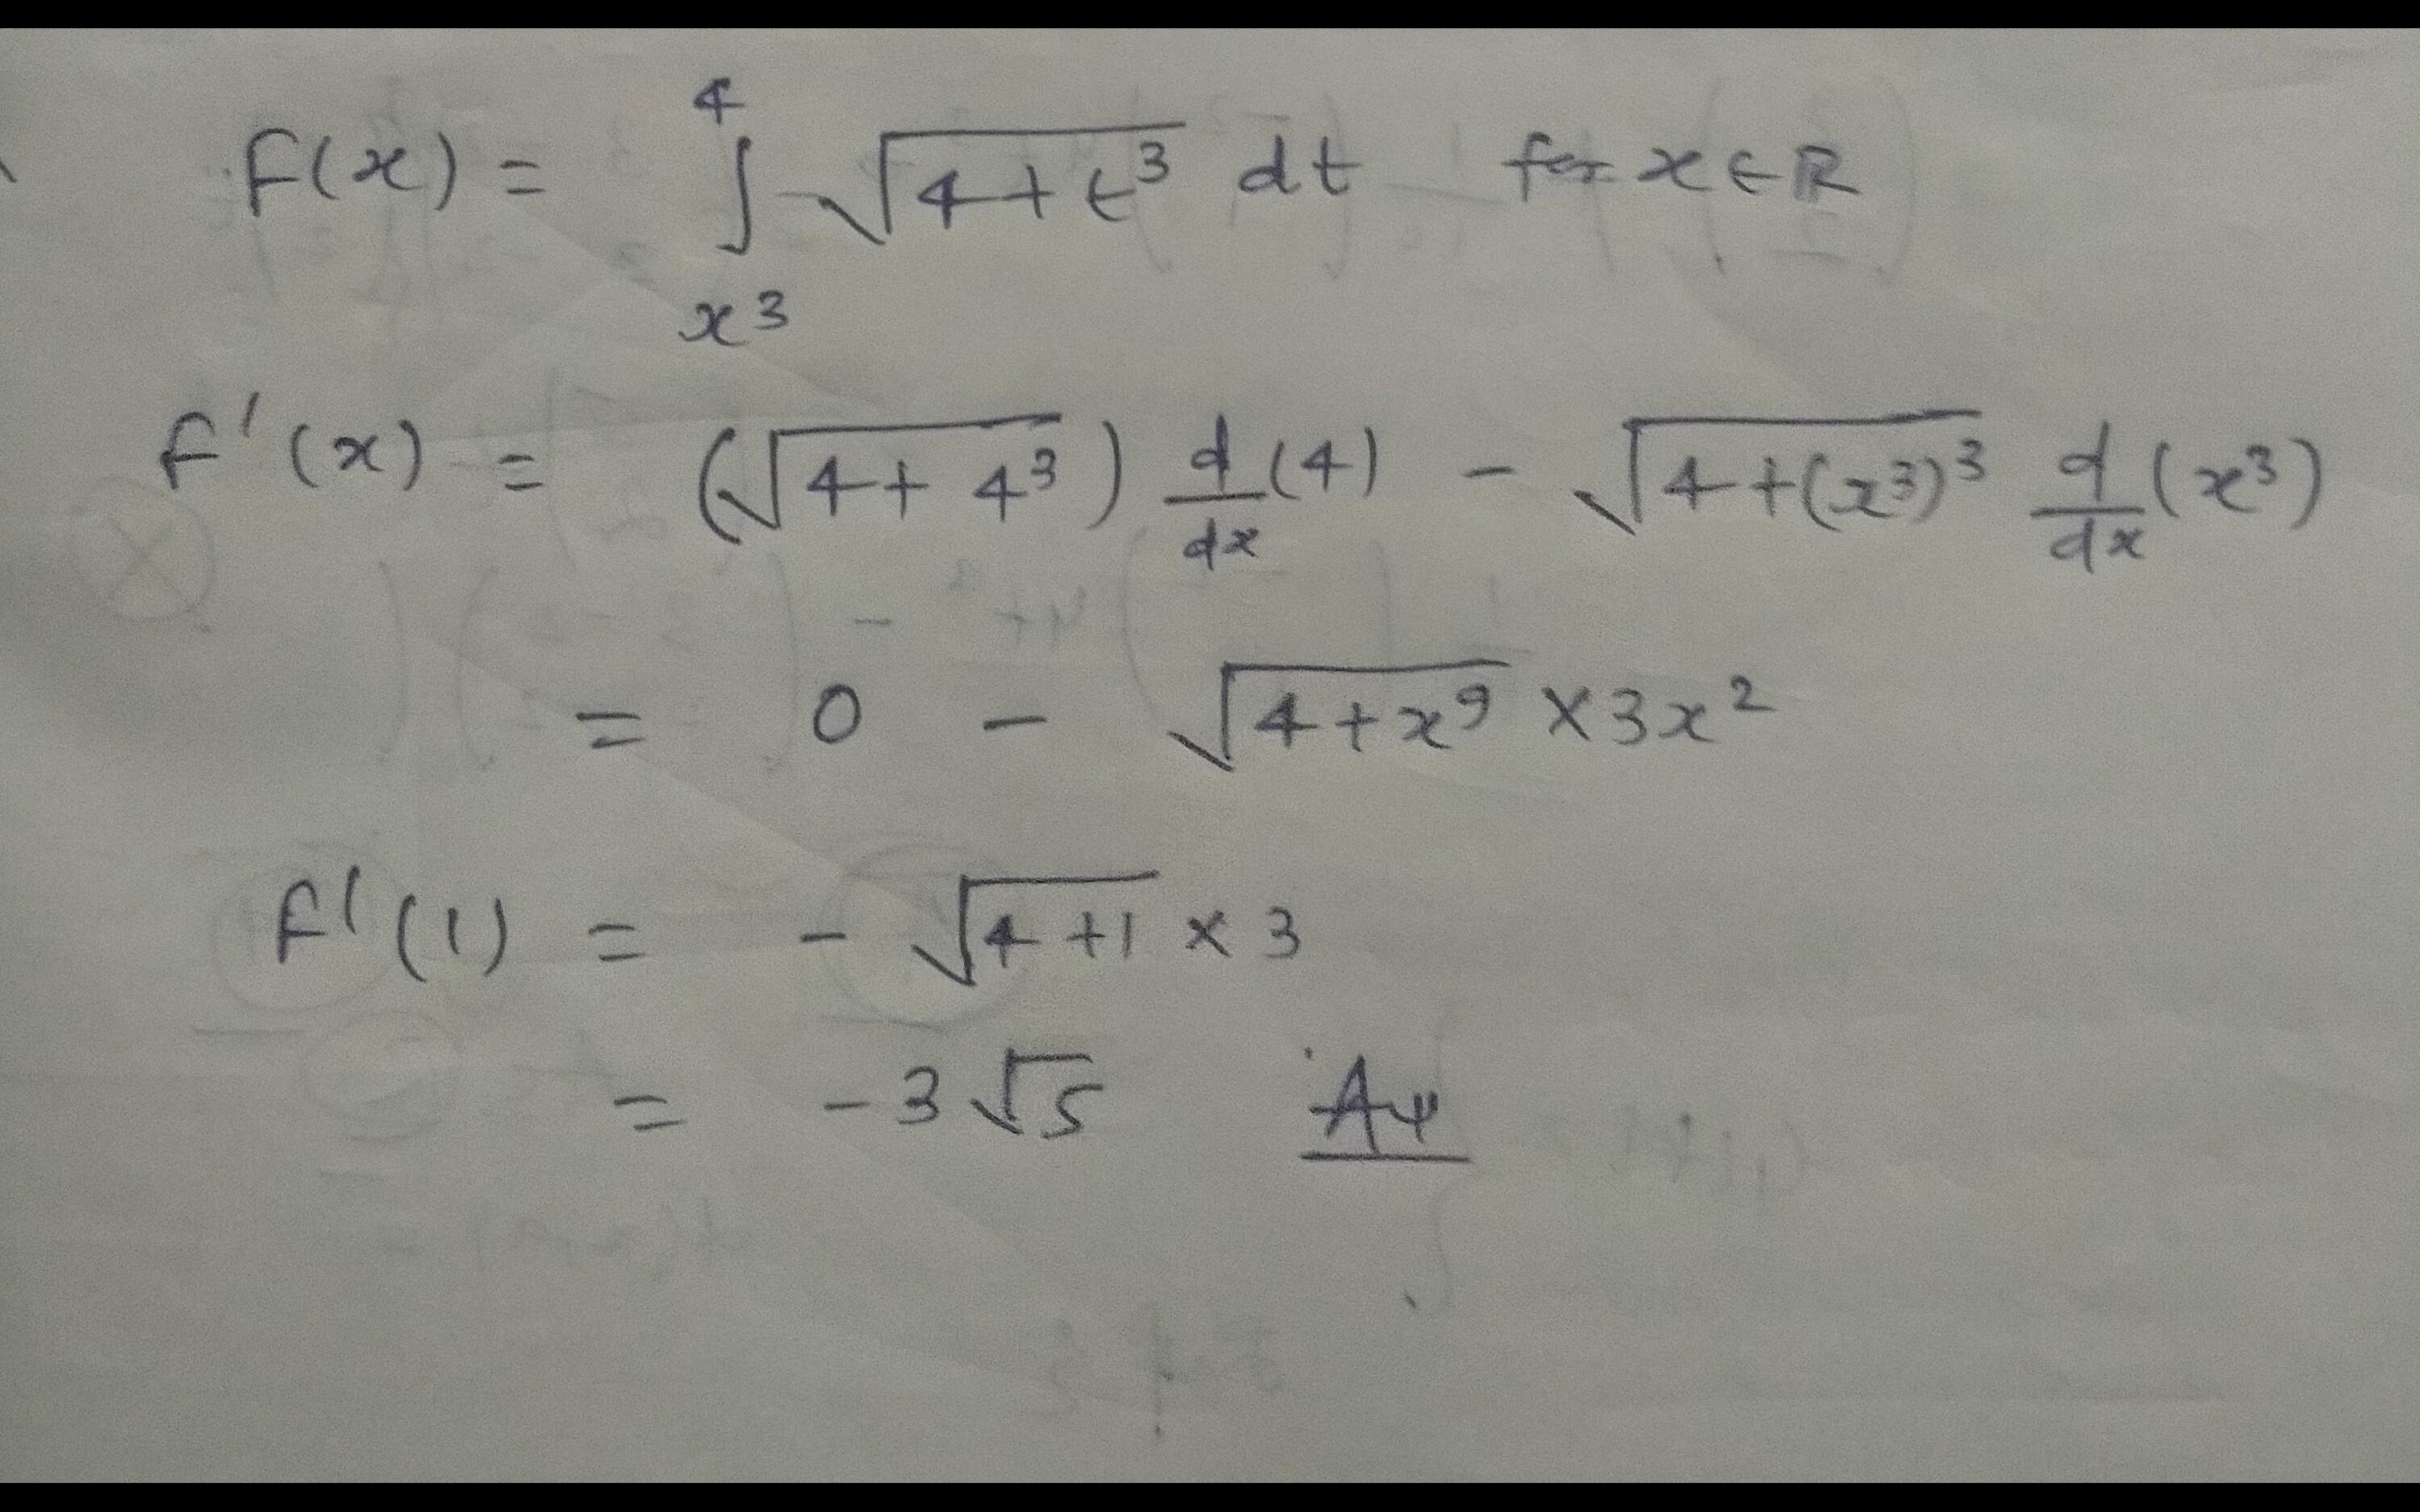 F(x) = ∫_{x³}^{4} √(4+t³) dt for x∈R
F'(x) = (√(4+4³)) d/dx (4) − √(4+(x³)³) d/dx (x³)
= 0 − √(4+x⁹) × 3x²
F'(1) = − √(4+1) × 3
= −3√5